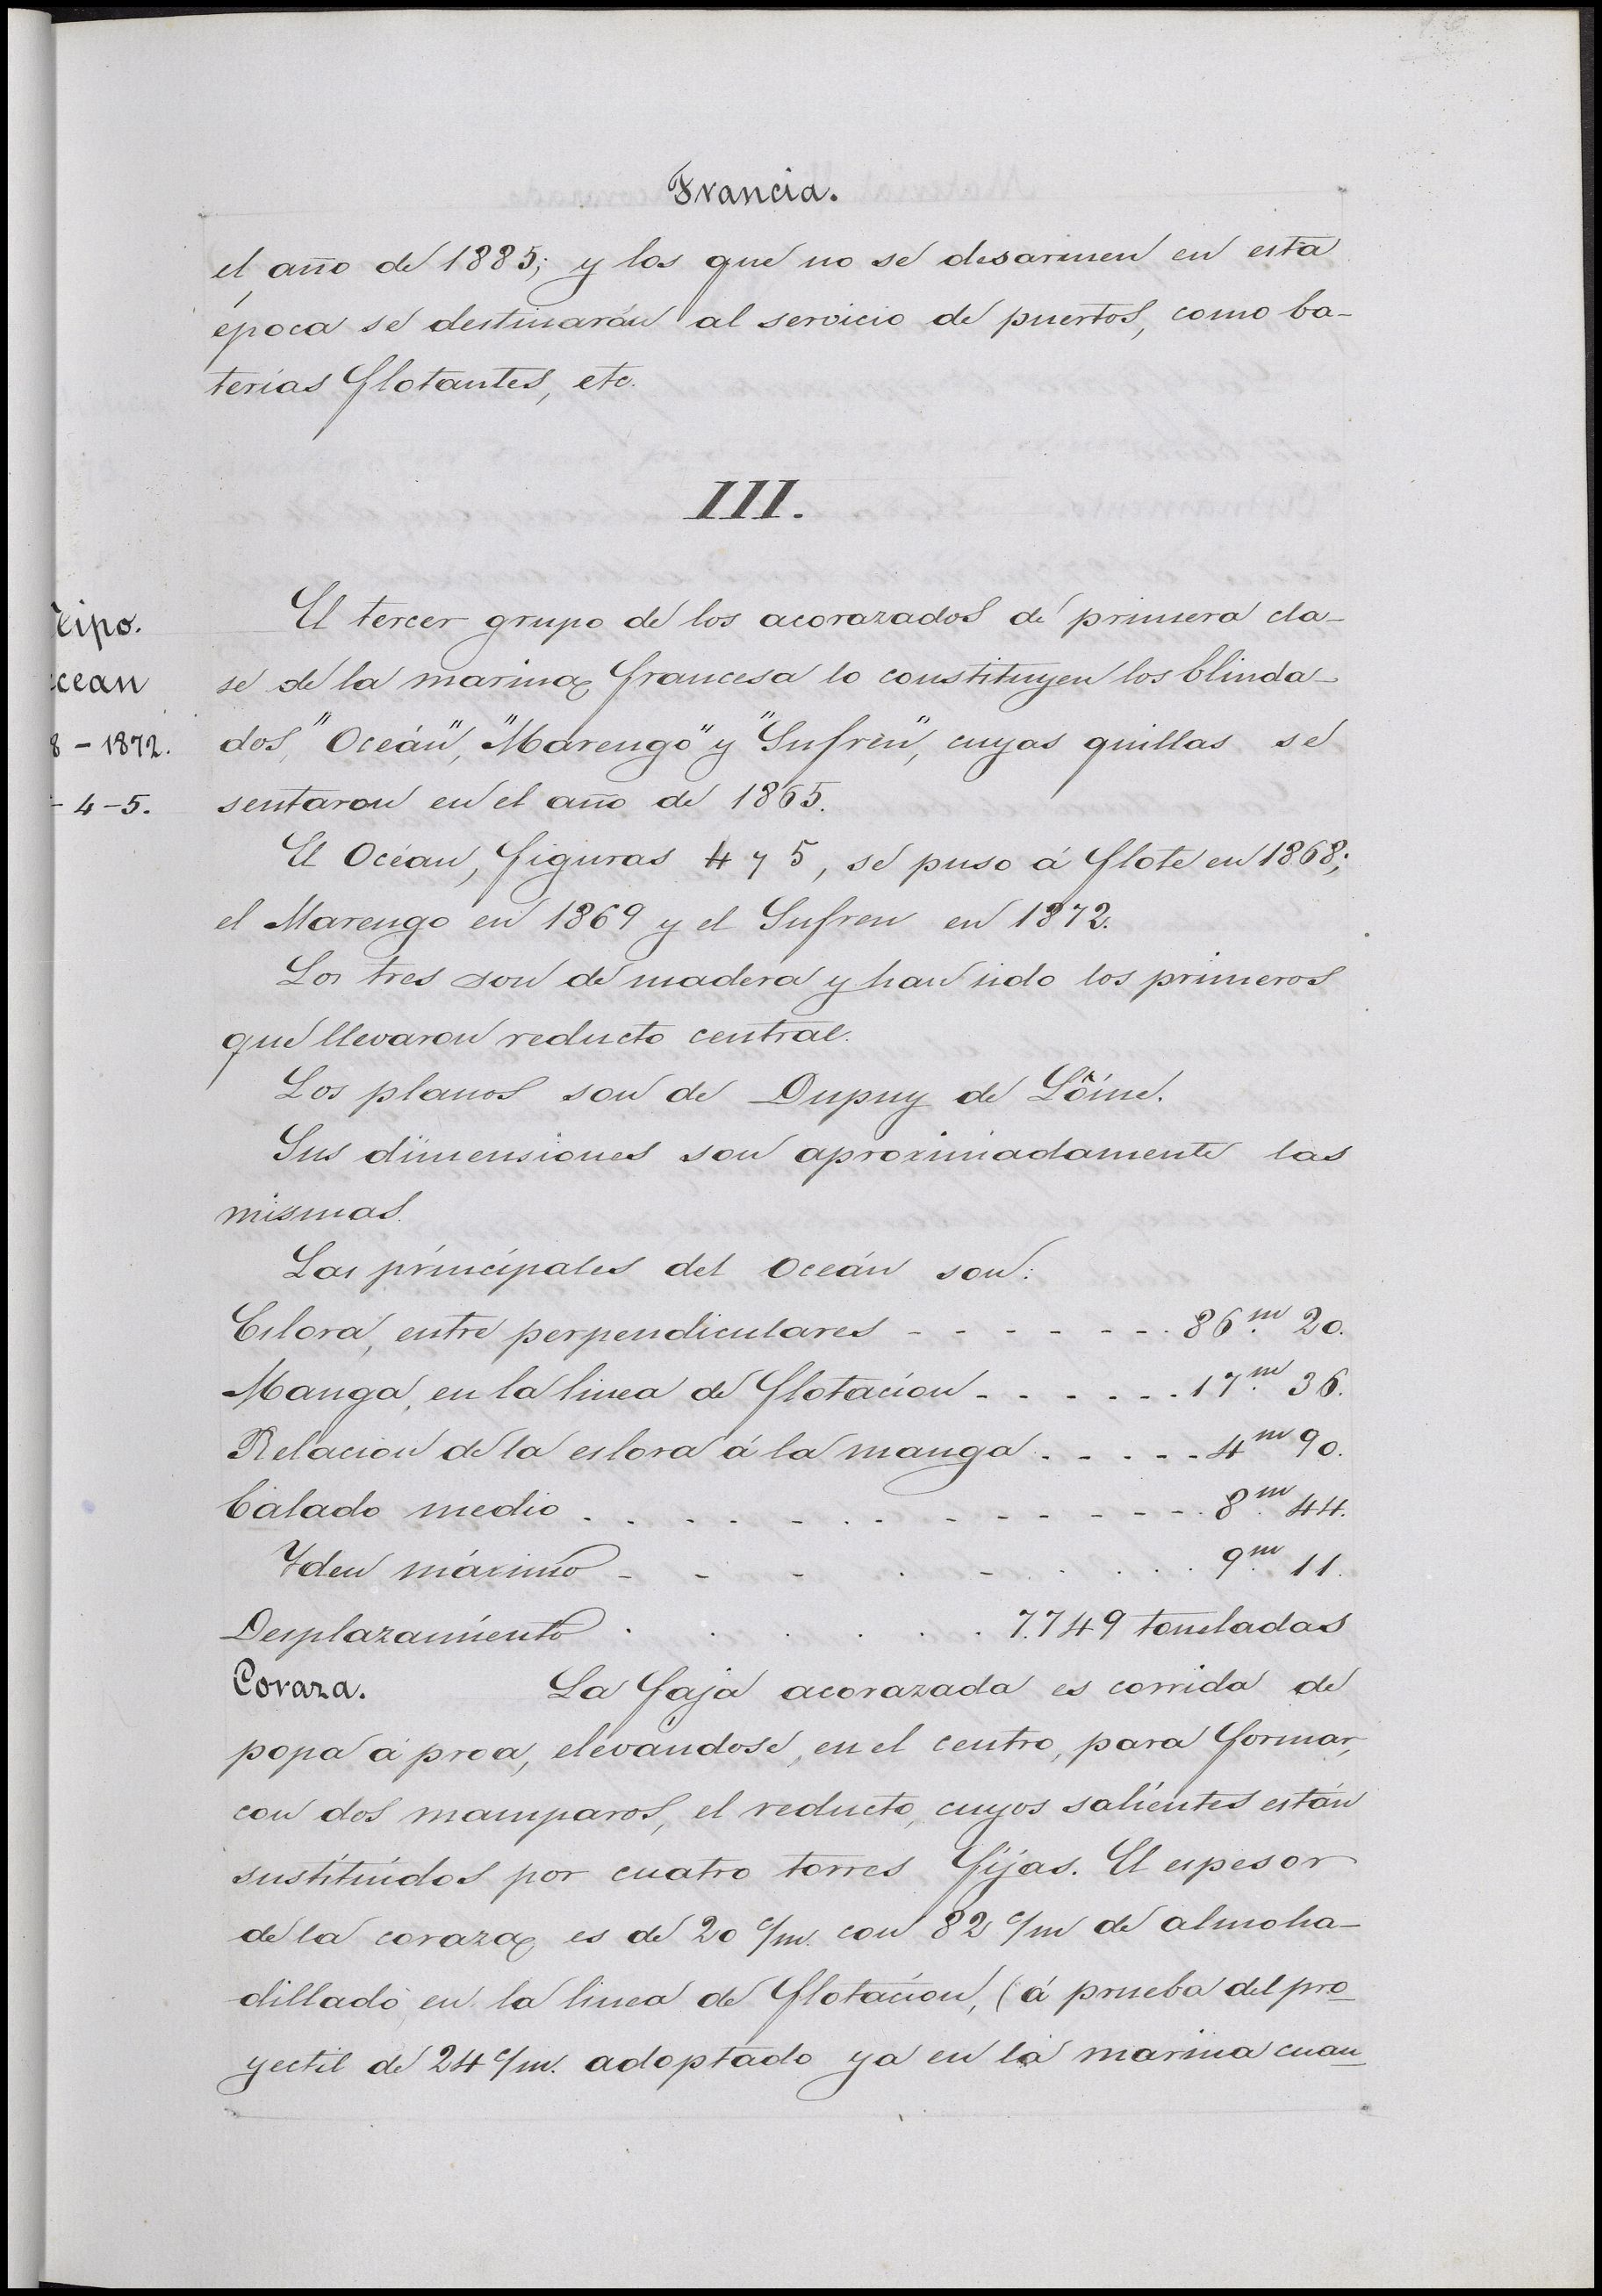 Francia.
el año de 1885; y los que no se desarmen en esta
época se destinarán al servicio de puertos, como ba-
terias flotantes, etc.
III.
Tipo.
cean
8 - 1872.
- 4 - 5.
El tercer grupo de los acorazados de primera cla-
se de la marina francesa lo constituyen los blinda-
dos, "Oceán", "Marengo" y "Sufren", cuyas quillas se
sentaron en el año de 1865.
El Océan, figuras 4 y 5, se puso á flote en 1868;
el Marengo en 1869 y el Sufren en 1872.
Los tres son de madera y han sido los primeros
que llevaron reducto central.
Los planos son de Dupuy de Lôme.
Sus dimensiones son aproximadamente las
mismas.
Las principales del Oceán son:
Eslora, entre perpendiculares - - - - - - - 86.m 20.
Manga, en la linea de flotacion - - - - - - - 17.m 36.
Relacion de la eslora á la manga - - - - - 4m 90.
Calado medio . . . . - . . - - - - - - 8.m 44.
Iden máximo - - - . - . . . . . 9.m 11.
Desplazamiento . . . . . . . 7.749 toneladas
Coraza. La faja acorazada es corrida de
popa á proa, elevándose, en el centro, para formar,
con dos mamparos, el reducto, cuyos salientes están
sustituidos por cuatro torres fijas. El espesor
de la coraza es de 20 c/m. con 82 c/m de almoha-
dillado en la linea de flotacion, (á prueba del pro-
yectil de 24 c/m. adoptado ya en la marina cuan-